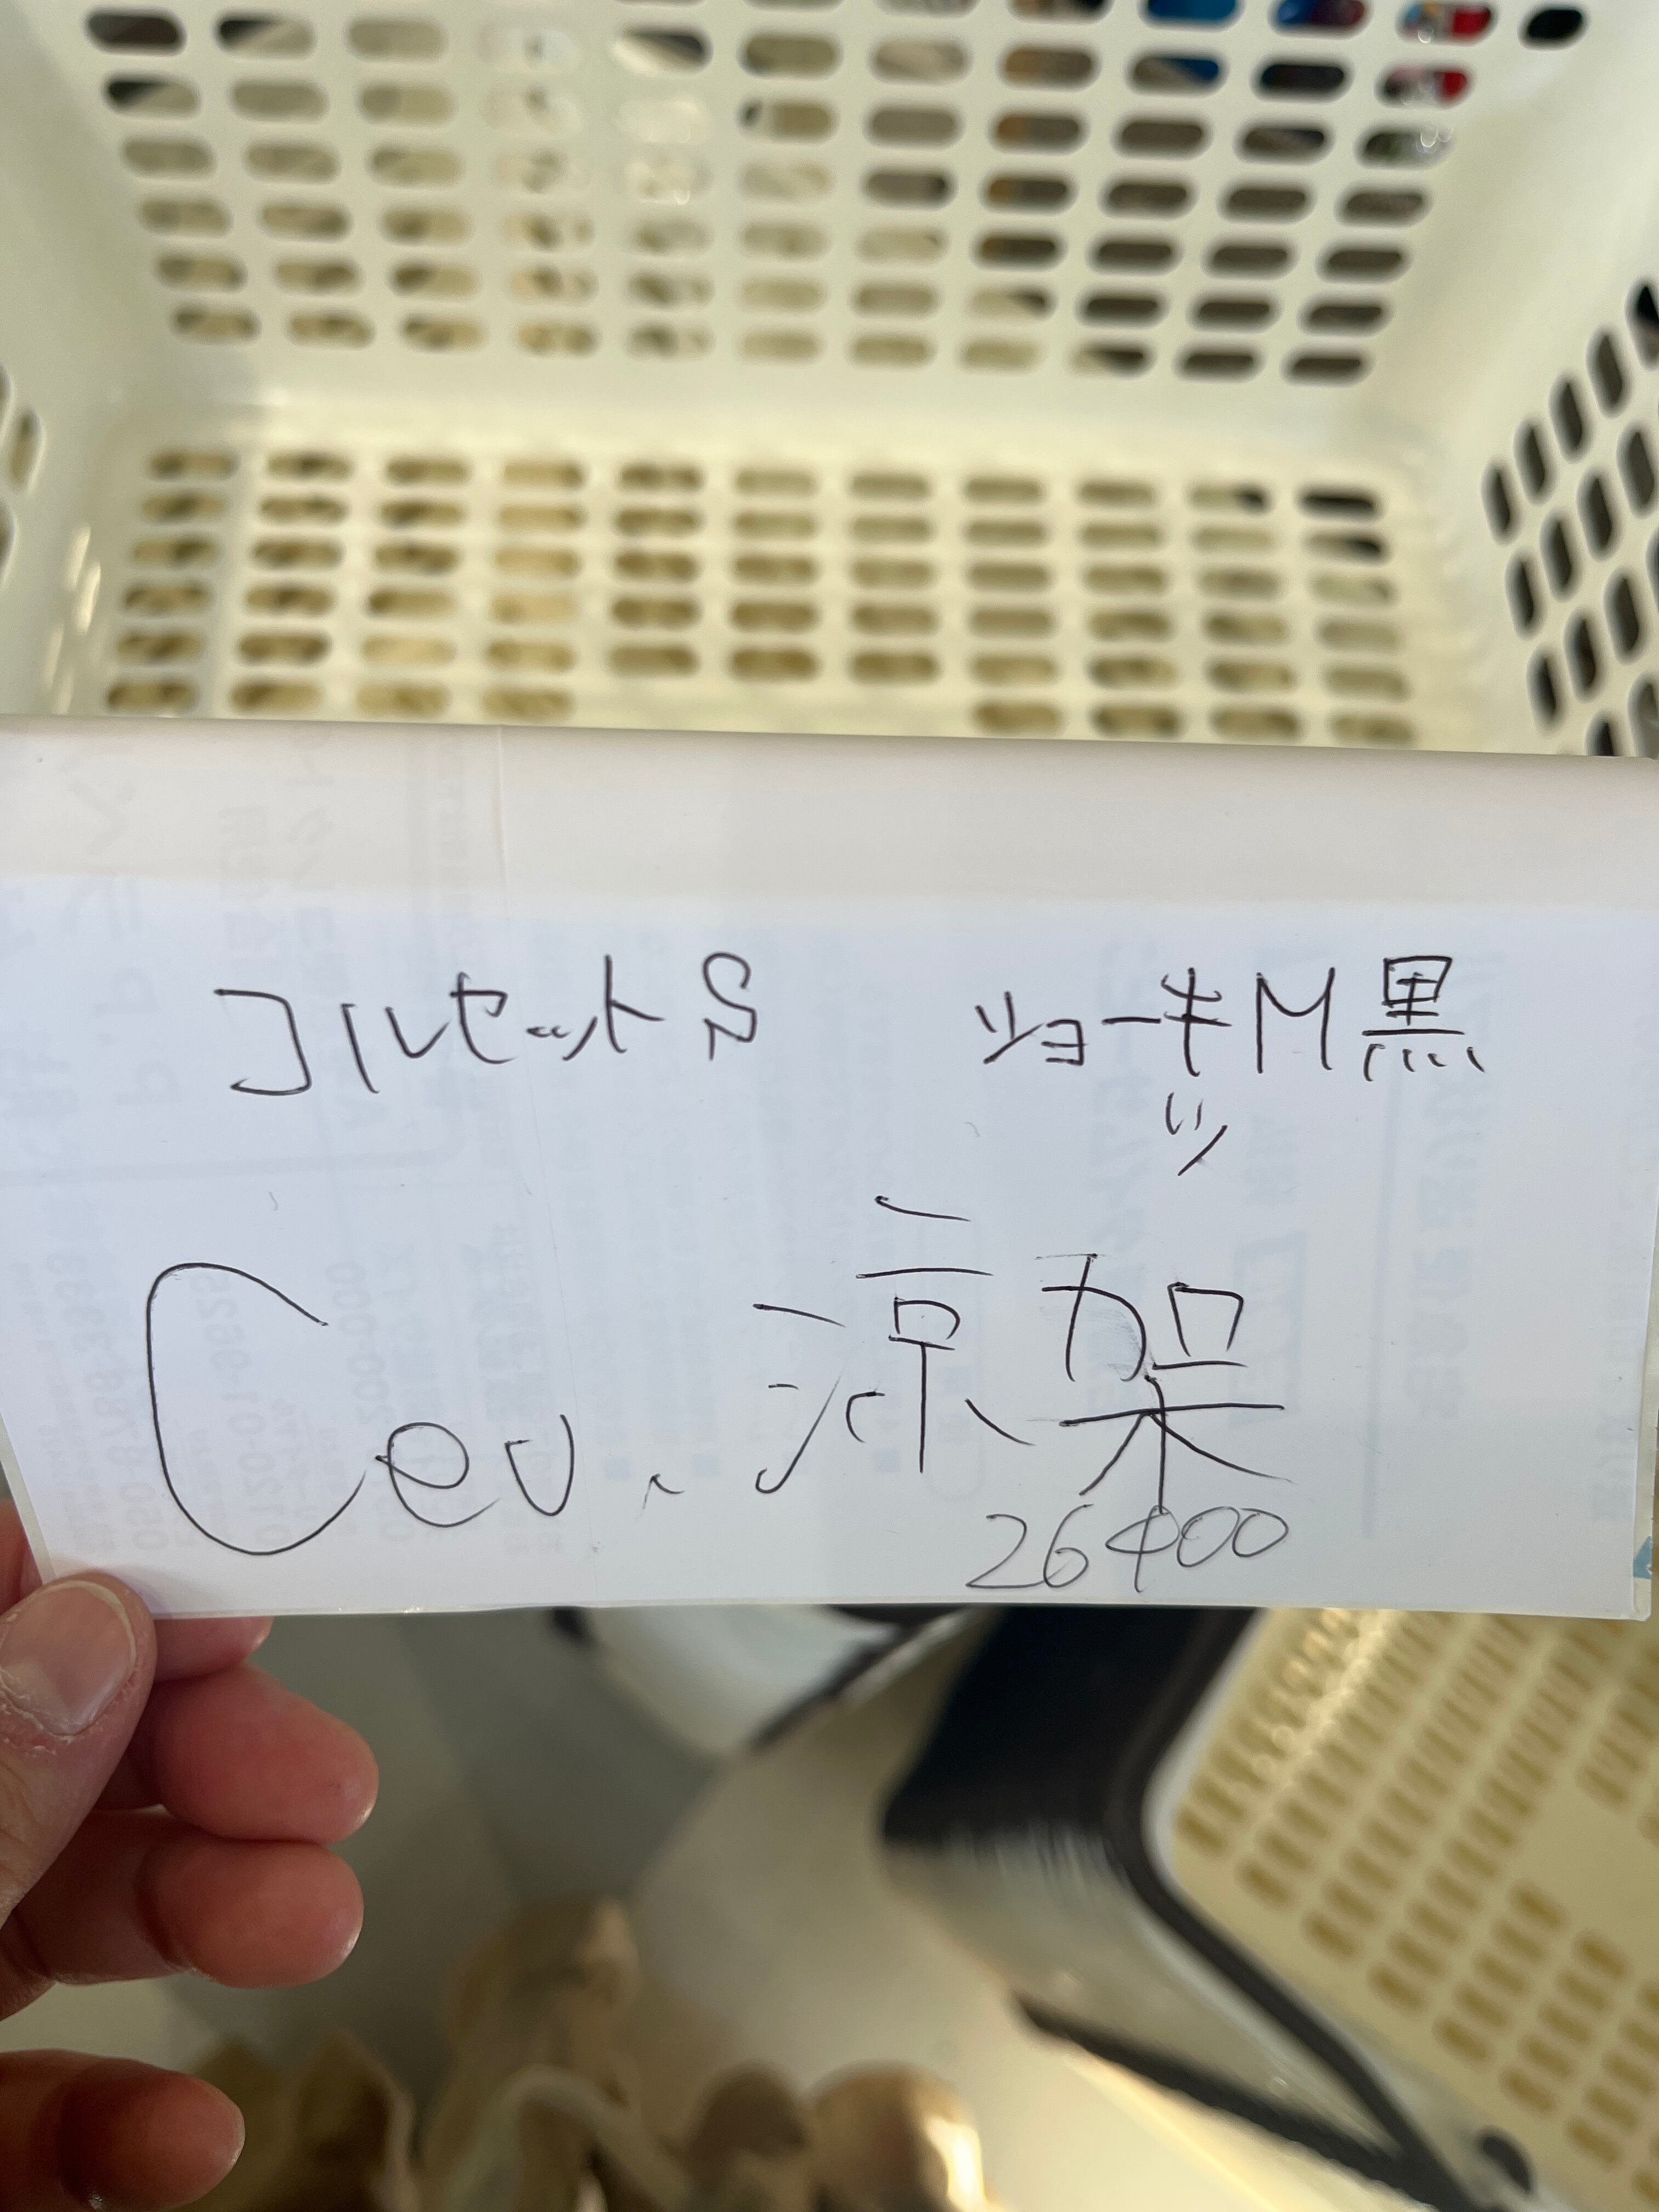 コルセットS ショーキM黒
ツ
Ceu. 涼架
26400